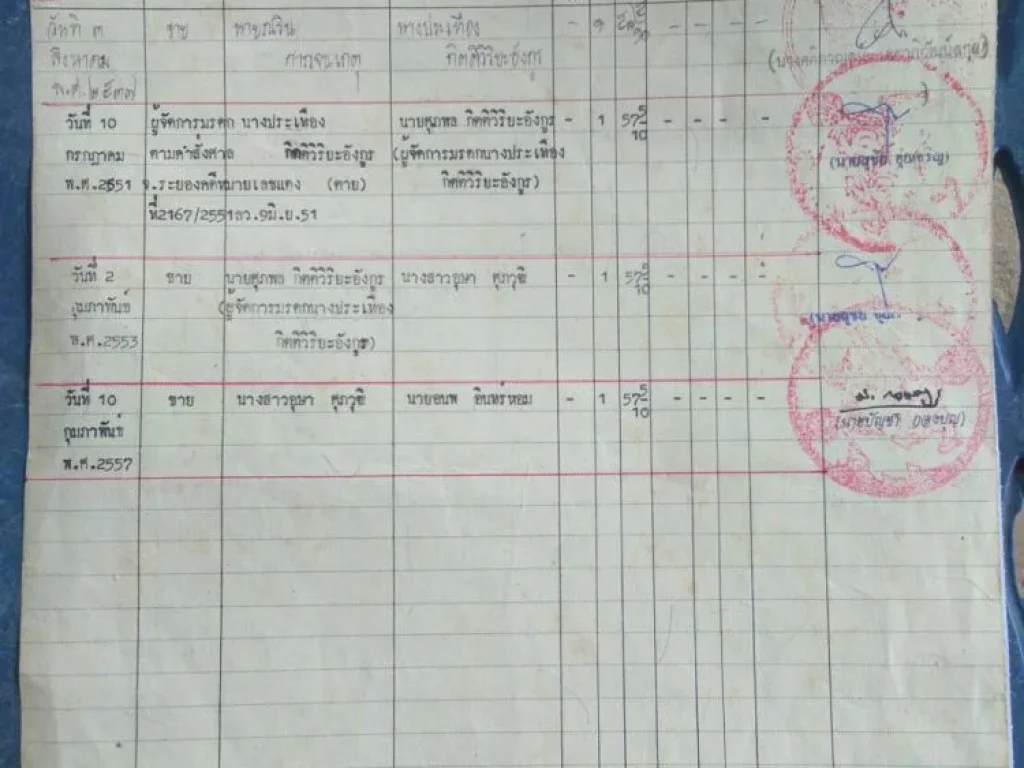 วันที่ ๓ ขาย นางประเทือง - ๑
สิงหาคม กิตติวิริยะอังกูร
พ.ศ.๒๕๓๗
วันที่ 10 ผู้จัดการมรดก นางประเทือง นายศุภพล กิตติวิริยะอังกูร - 1 57 5/10 - - - -
กรกฎาคม ตามคำสั่งศาล กิตติวิริยะอังกูร (ผู้จัดการมรดกนางประเทือง
พ.ศ.2551 จ.ระยองคดีหมายเลขแดง (ตาย) กิตติวิริยะอังกูร)
ที่2167/2551ลว.9มิ.ย.51
วันที่ 2 ขาย นายศุภพล กิตติวิริยะอังกูร นางสาวอุษา ศุภวุฒิ - 1 57 5/10 - - - -
กุมภาพันธ์ (ผู้จัดการมรดกนางประเทือง
พ.ศ.2553 กิตติวิริยะอังกูร)
วันที่ 10 ขาย นางสาวอุษา ศุภวุฒิ นายอนพ อินทร์หอม - 1 57 5/10 - - - -
กุมภาพันธ์ (นายบัญชา
พ.ศ.2557